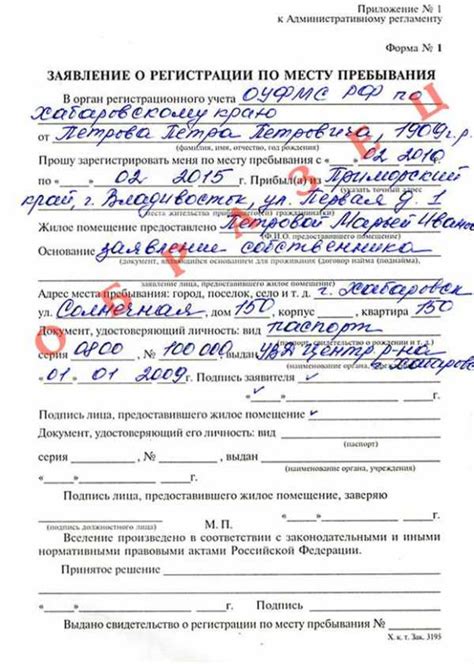 Приложение № 1
к Административному регламенту
Форма № 1
ЗАЯВЛЕНИЕ О РЕГИСТРАЦИИ ПО МЕСТУ ПРЕБЫВАНИЯ
В орган регистрационного учета ОУФМС РФ по
Хабаровскому краю
от Петрова Петра Петровича, 1909г.р.
(фамилия, имя, отчество, год рождения)
Прошу зарегистрировать меня по месту пребывания с « » 02 2010
по « » 02 2015 г. Прибыл(а) из Приморский
(указать точный адрес
край, г. Владивосток, ул. Первая д. 1
места жительства прибывшего(ей) гражданина(ки)
Жилое помещение предоставлено Петровой Марьей Иванов
(Ф.И.О. предоставившего
Основание заявление собственника
(документ, являющийся основанием для проживания (договор найма (поднайма),
заявление лица, предоставившего жилое помещение)
Адрес места пребывания: город, поселок, село и т. д. г. Хабаровск
ул. Солнечная, дом 150, корпус , квартира 150
Документ, удостоверяющий личность: вид паспорт
(паспорт, свидетельство о рождении и т. д.)
серия 0800 , № 100 000, выдан УВД Центр. р-на
(наименование органа, учреждения)
г. Хабаров
«01» 01 2009 г. Подпись заявителя ✓
« » г.
Подпись лица, предоставившего жилое помещение ✓
Документ, удостоверяющий его личность: вид
(паспорт)
серия , № , выдан
(наименование органа, учреждения)
« » г.
Подпись лица, предоставившего жилое помещение, заверяю
(подпись должностного лица) М. П.
Вселение произведено в соответствии с законодательными и иными
нормативными правовыми актами Российской Федерации.
Принятое решение
« » г. Подпись
Выдано свидетельство о регистрации по месту пребывания №
Х. к. т. Зак. 3195
ОБРАЗЕЦ